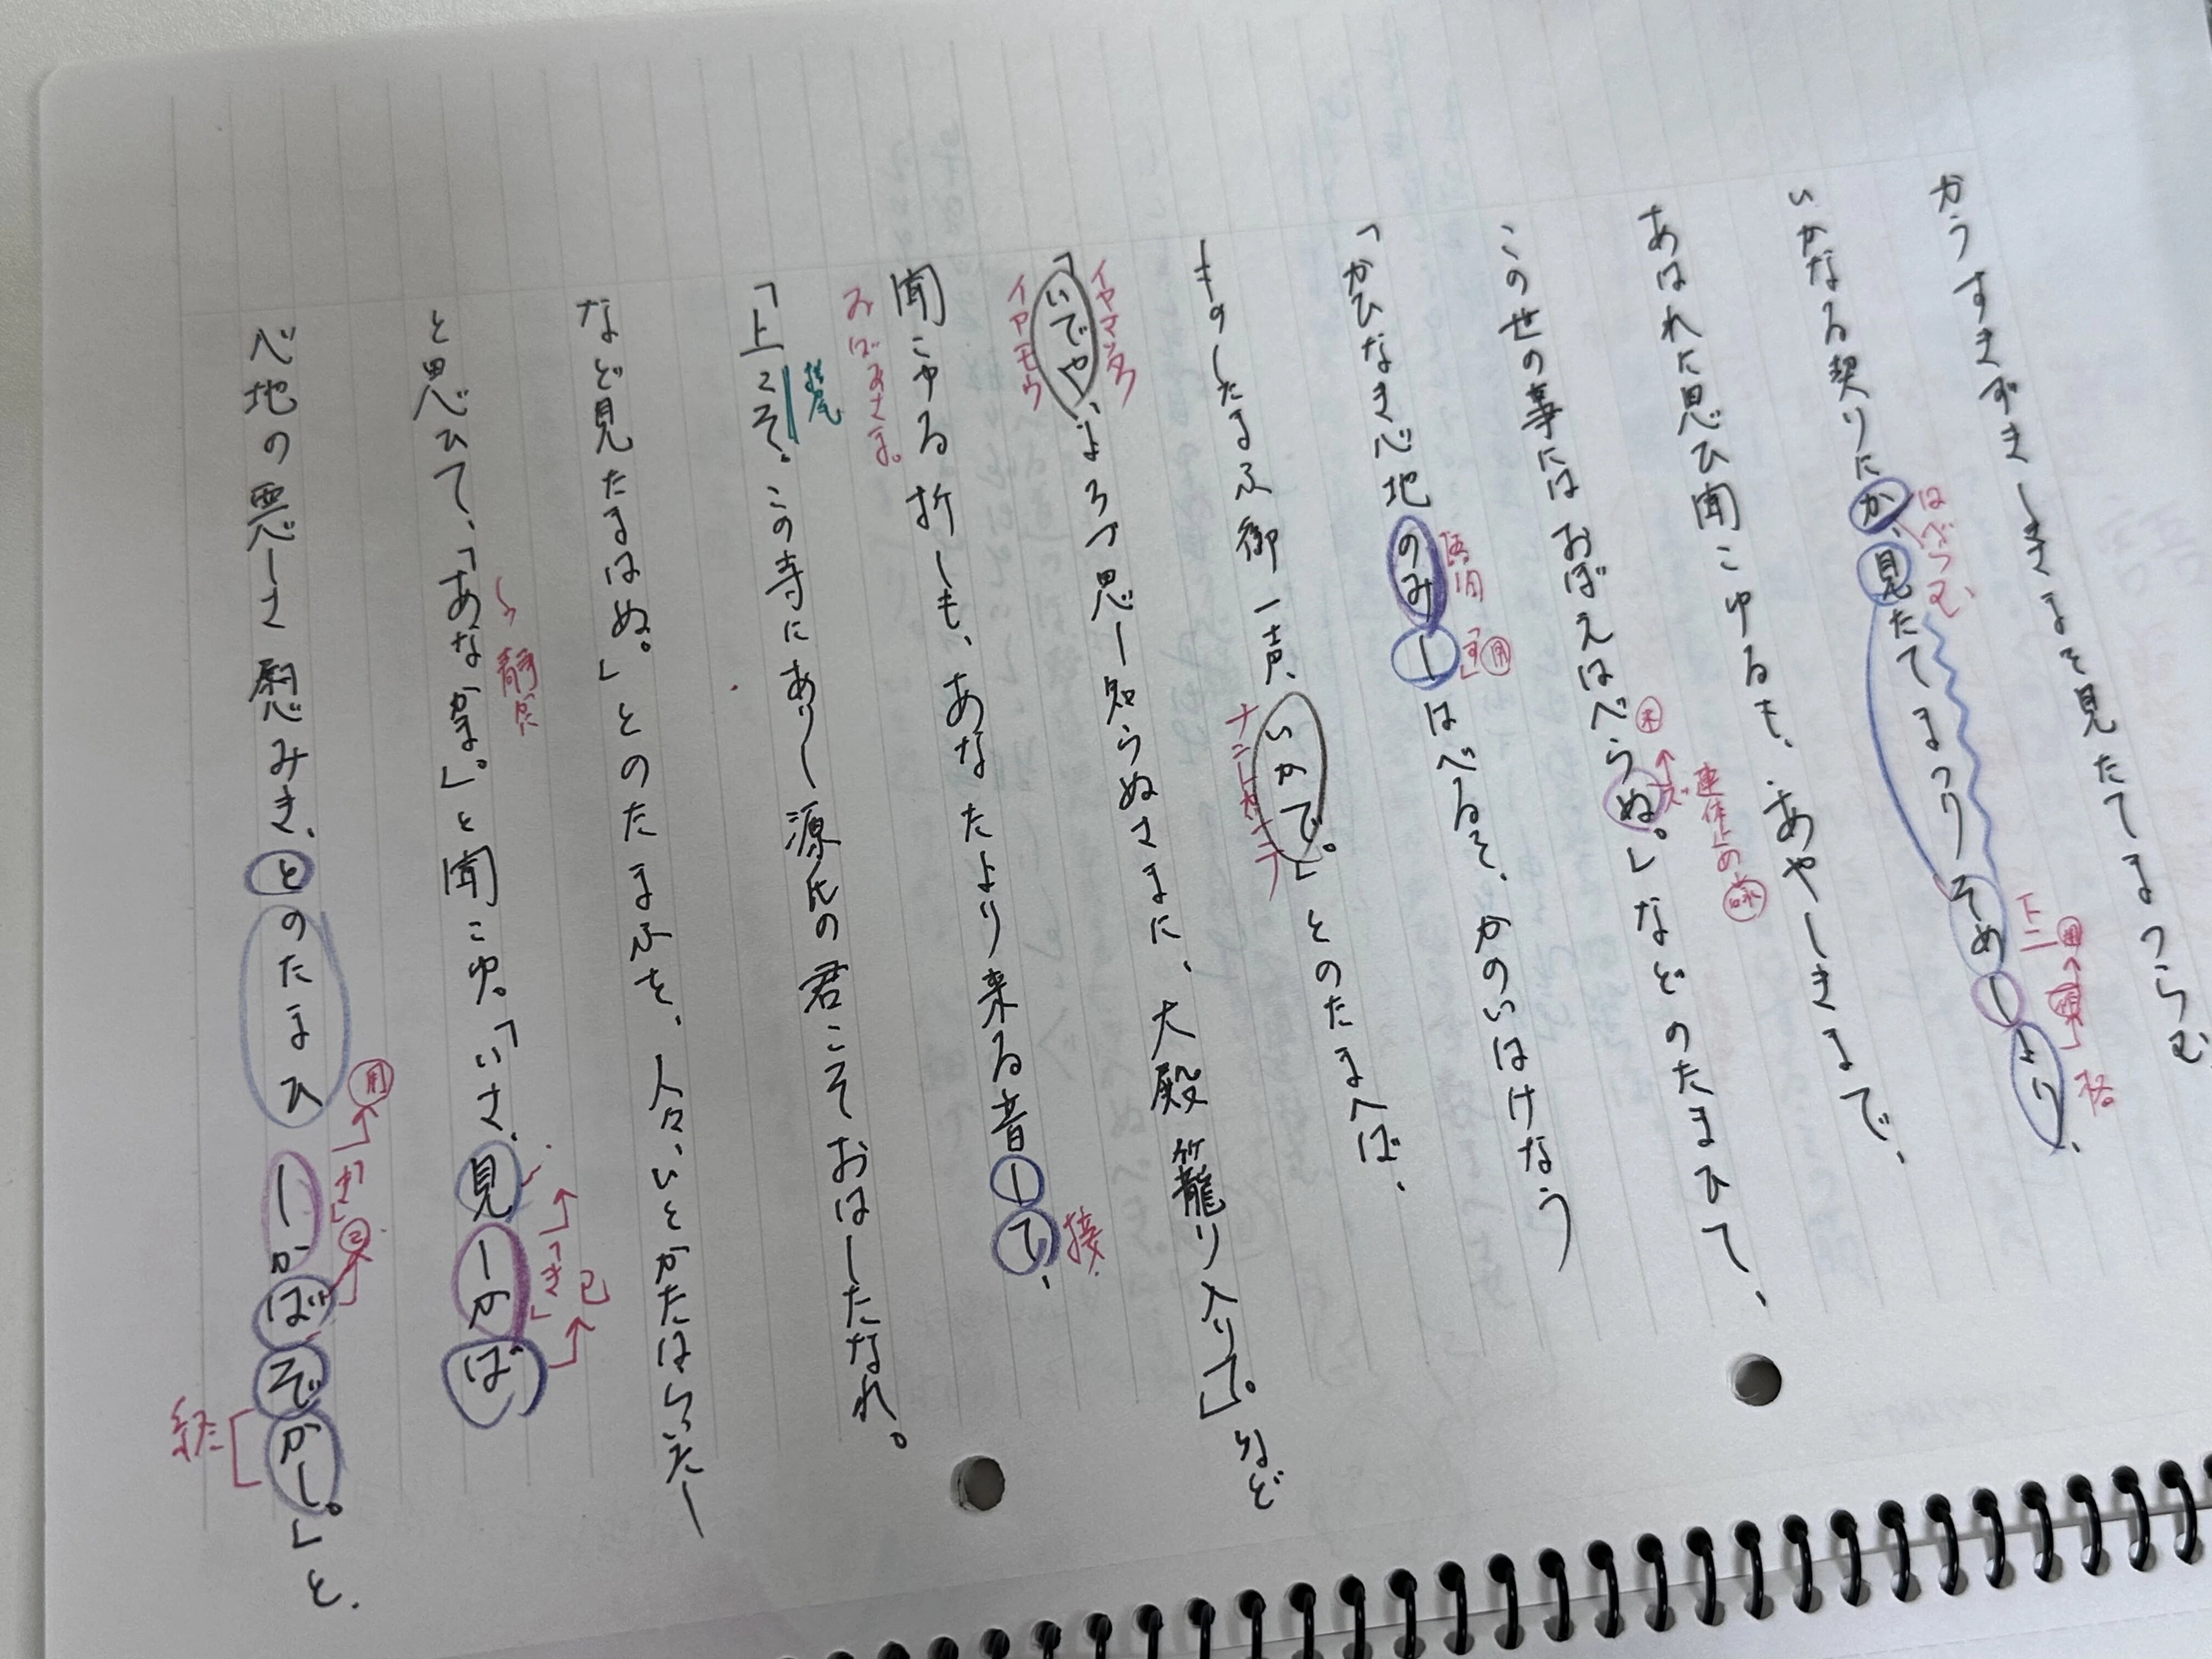 かうすきずきしきさまを見たてまつらむ
いかなる契りにか、見たてまつりそめしより、
はべらむ
下二
用
格
あはれに思ひ聞こゆるも、あやしきまで、
この世の事にはおぼえはべらぬ。」などのたまひて、
未
ズ
連体止め
「かひなき心地のみしはべるを、かのいはけなう
す
用
ものしたまふ御一声、いかで。」とのたまへば、
ナントカシテ
「いでや、よろづ思し知らぬさまに、大殿籠り入りて。」など
イヤマッタク
イヤモウ
聞こゆる折しも、あなたより来る音して、
接
おばあさま。
「上こそ。この寺にありし源氏の君こそおはしたなれ。
接尾
など見たまはぬ。」とのたまふを、人々、いとかたはらいたし
と思ひて、「あなかま。」と聞こゆ。「いさ、見しかば
静かに
「き」
已
心地の悪しさ慰みき、とのたまひしかばぞかし。」と、
用
「き」
已
終